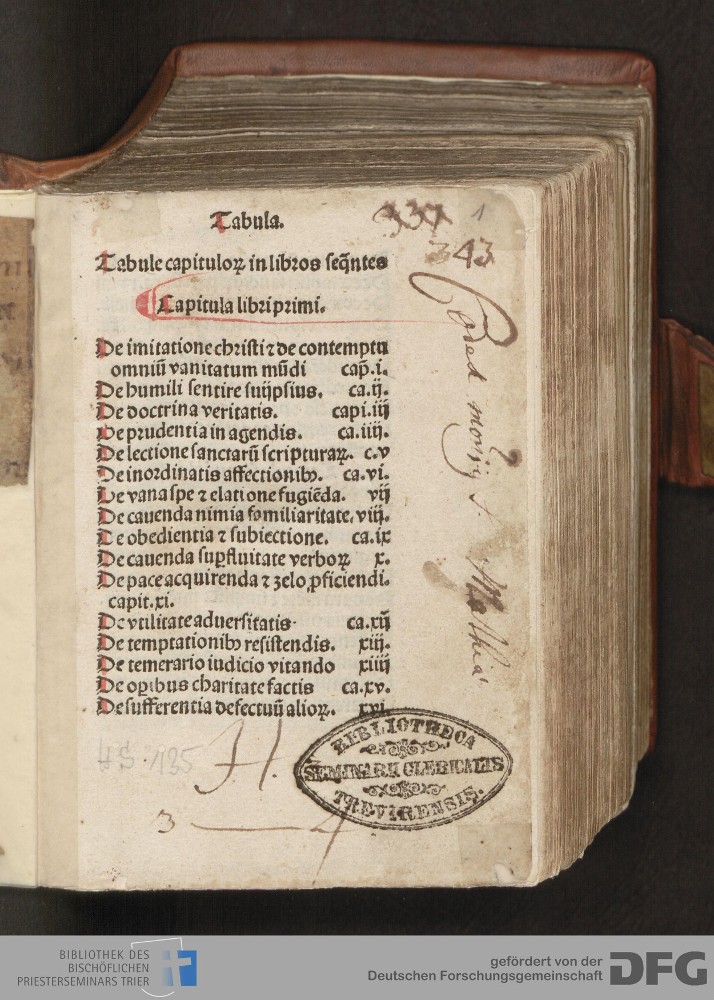 Tabula.
337 1
343
Tabule capituloꝝ in libros seq̄ntes
Capitula libri primi.
De imitatione christi ⁊ de contemptu
omniū vanitatum mūdi cap̄.i.
De humili sentire suijpsius. ca.ij.
De doctrina veritatis. capi.iij
De prudentia in agendis. ca.iiij.
De lectione sanctarū scripturaꝝ. c.v
De inordinatis affectionibꝰ. ca.vi.
De vana spe ⁊ elatione fugiēda. vij
De cauenda nimia familiaritate. viij.
De obedientia ⁊ subiectione. ca.ix
De cauenda suꝑfluitate verboꝝ x.
De pace acquirenda ⁊ zelo ꝓficiendi.
capit.xi.
De vtilitate aduersitatis. ca.xij
De temptationibꝰ resistendis. xiij.
De temerario iudicio vitando xiiij
De oꝑibus charitate factis ca.xv.
De sufferentia defectuū alioꝝ. xvi
Mathia
H.
3 — 4
BIBLIOTHECA
SEMINARII CLERICALIS
TREVIRENSIS.
BIBLIOTHEK DES
BISCHÖFLICHEN
PRIESTERSEMINARS TRIER
gefördert von der
Deutschen Forschungsgemeinschaft
DFG